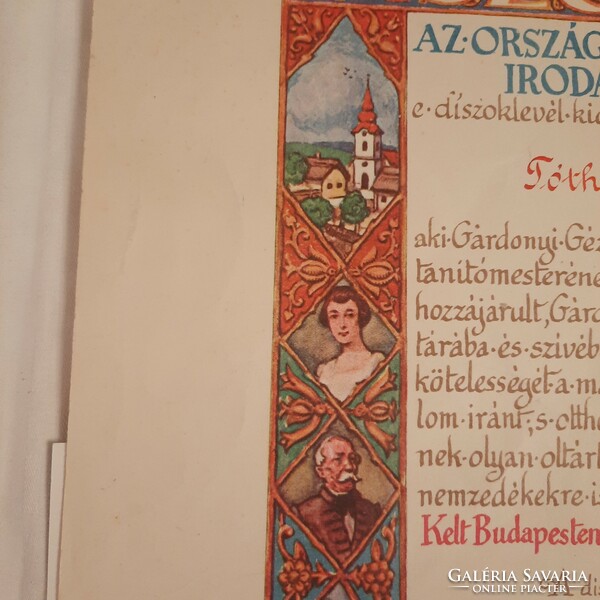 AZ·ORSZÁG
IRODA
e·díszoklevél·kia
Tóth
aki·Gárdonyi·Géz
tanítómesteréne
hozzájárult,Gárd
tárába·és·szívéb
kötelességét·a·m
lom·iránt,s·otth
nek·olyan·oltár
nemzedékekre·i
Kelt Budapesten
A dís
GALÉRIA SAVARIA
ONLINE PIACTÉR